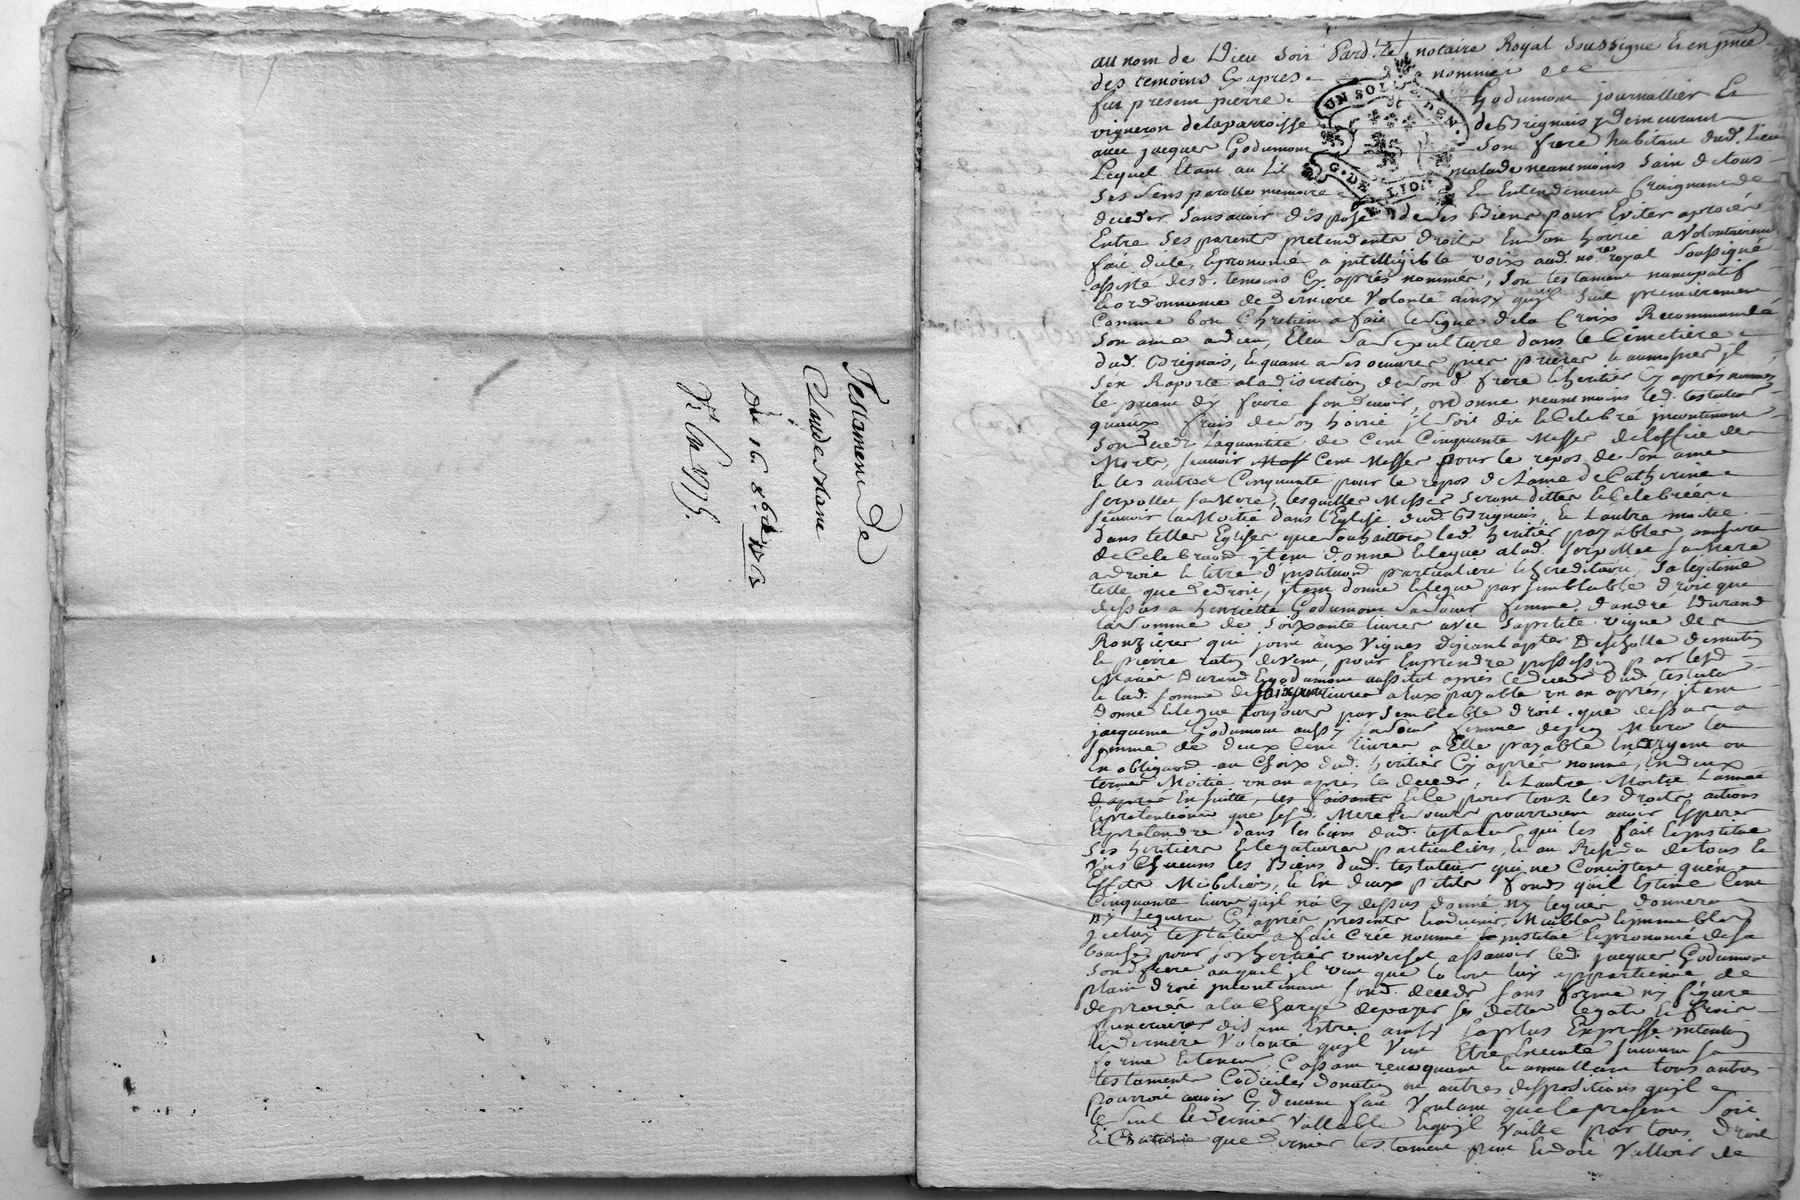 Testament de
Claude
Du 16. 8bre
au nom de Dieu soit Pard. Le notaire Royal soussigné & en pnce
des temoins Cy apres nommés
fut present pierre Godumont journallier &
vigneron de la parroisse de Brignais y demeurant
avec jacques Godumont son frere habitant dud. lieu
Lequel Etant au Lit malade neanmoins sain de tous
Ses Sens parolle memoire & Entendement Craignant de
deceder sans avoir disposé de ses Biens pour Eviter a procés
Entre ses parents pretendants droits En son hoirie a Volontairemt
fait dicté & prononcé a intelligible voix aud. nore royal soussigné
assisté desd. temoins Cy aprés nommés, son testament nuncupatif
& ordonnance de derniere Volonté ainsy quil suit premierement
Comme bon Chretien a fait le signe de la Croix Recommandé
son ame a dieu, Eleu sa sepulture dans le Cimetiere
dud. Brignais, & quant a ses oeuvres pies prieres & aumosnes jl
s'en Raporte a la discretion de son d. frere & heritier Cy aprés nommé
le priant d'y faire son devoir, ordonne neanmoins led. testateur
quaux frais de son hoirie jl soit dit & Celebré jncontinent
son deceds La quantité de Cent Cinquante Messes de l'office des
Morts, scavoir Cent Messes pour le repos de son ame
& les autres Cinquante pour le repos de l'ame de Catherine
serpollet sa Mere, lesquelles Messes seront dittes & Celebrées
scavoir la Moitié dans l'Eglise dud. Brignais, & l'autre moitié
dans telles Eglises que souhaittera led. heritier payables a mesure
de Celebraon jtem donne & legue a lad. serpollet sa Mere
a droit & titre d'jnstituon particuliere & hereditaire, sa legitime
telle que de droit, jtem donne & legue par semblable droit que
dessus a henriette Godumont sa soeur femme d'andré Durand
la somme de soixante livres avec sa petite vigne des
Ronzieres qui joint aux Vignes
& pierre pour En prendre possession par lesd.
Mariés Durand & Godumont aussitot aprés le deceds dud. testateur
& lad. somme de livres a Eux payable un an aprés, jtem
Donne & legue toujours par semblable droit que dessus a
jacqueme Godumont aussy sa soeur femme de la
somme de deux Cent livres a Elle payable En argent ou
En obligaon au Choix dud. heritier Cy aprés nommé, En deux
termes Moitié un an aprés le deceds, & l'autre Moitié l'année
Ensuitte, & Ce pour tous les droits actions
& pretentions que sesd. Mere & soeurs pourroient avoir Esperer
& pretendre dans les biens dud. testateur qui les fait & jnstitue
ses heritiers & legataires particuliers, & au Residu de tous &
Uns Chacuns les Biens dud. testateur qui ne Consistent quen
Effets Mobiliers, & En deux petits fonds quil Estime Cent
Cinquante livres quil n'a Cy dessus donné ny legué, donnera
ny Leguera Cy aprés presents & advenir, Meubles & jmmeubles
jceluy testateur a fait Créé nommé & jnstitué & prononcé de sa
bouche pour son heritier universel assavoir led. jacques Godumont
son d. frere auquel jl veut que le tout luy appartienne de
plain droit jncontinent sond. deceds sans forme ny figure
de procés a la Charge de payer ses dettes legats & frais
funeraires disant Estre ainsy sa plus Expresse jntention
& derniere Volonté quil Veut Etre Executé suivant sa
forme & teneur, Cassant revoquant & annullant tous autres
testaments Codiciles donations ou autres dispositions quil
pourroit avoir Cy devant fait Voulant que le present soit
le seul & dernier Vallable & quil Vaille par tous droits
que dernier testament peut & doit Valloir de
UN SOL
G. DE LION